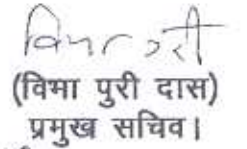 (विमा पुरी दास)
प्रमुख सचिव।